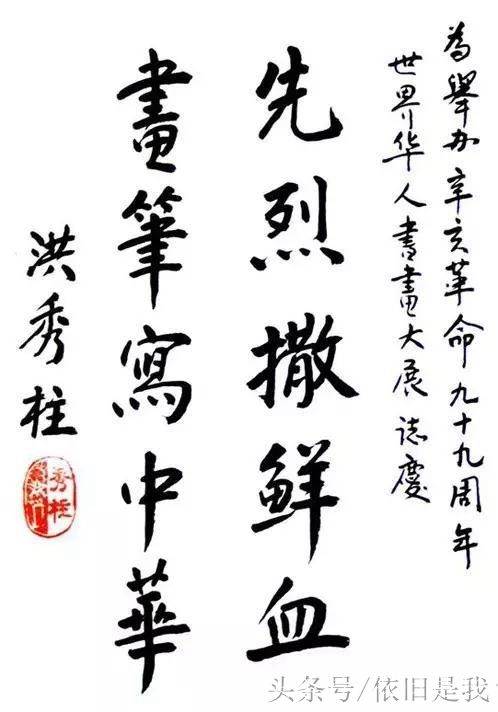 為舉办辛亥革命九十九周年
世界华人書畫大展誌慶
先烈撒鲜血
畫筆寫中華
洪秀柱
秀柱
头条号/依旧是我